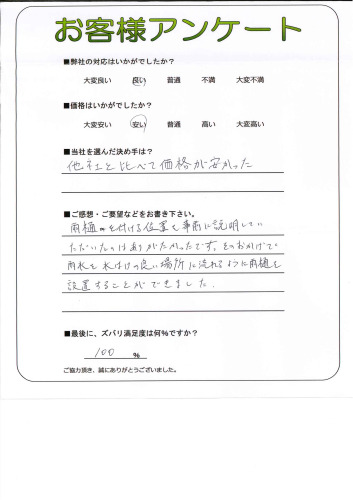 お客様アンケート
■弊社の対応はいかがでしたか?
大変良い 良い 普通 不満 大変不満
■価格はいかがでしたか?
大変安い 安い 普通 高い 大変高い
■当社を選んだ決め手は?
他社と比べて価格が安かった
■ご感想・ご要望などをお書き下さい。
雨樋を付ける位置を事前に説明してい
ただいたのはありがたかったです。そのおかげで
雨水を水はけの良い場所に流れるように雨樋を
設置することができました。
■最後に、ズバリ満足度は何%ですか?
100 %
ご協力頂き、誠にありがとうございました。